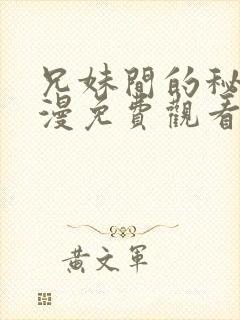 兄妹間的秘
漫免費觀看
黃文軍